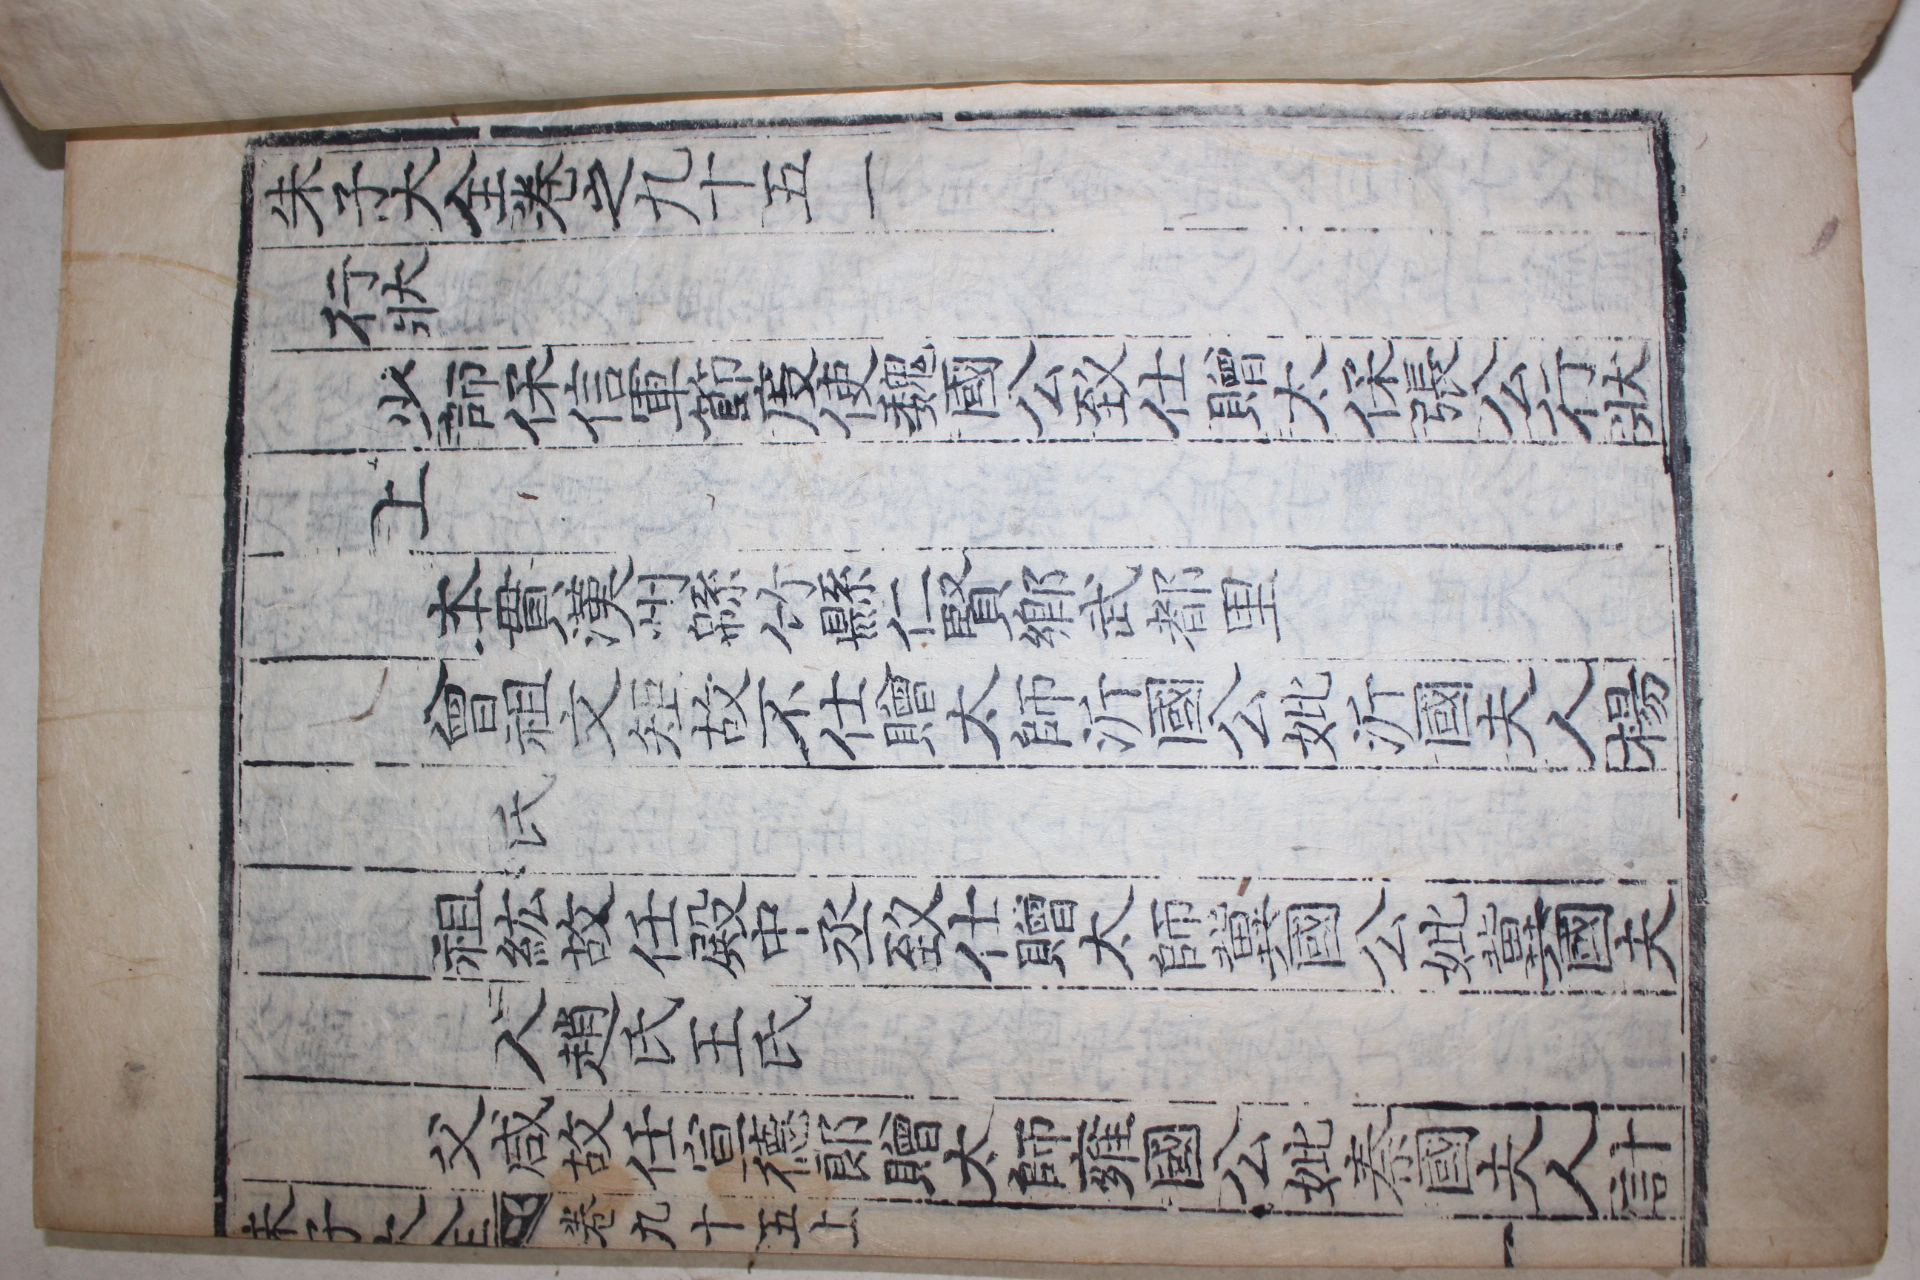 朱子大全卷之九十五
行狀
少師保信軍節度使魏國公致仕贈太保張公行狀
上
本貫漢州綿竹縣仁賢鄉武都里
曾祖文矩故不仕贈太師沂國公妣沂國夫人楊
氏
祖紘故任殿中丞致仕贈太師冀國公妣冀國夫
人趙氏王氏
父咸故任宣德郎贈太師雍國公妣秦國夫人計
朱子大全 卷九十五上 一